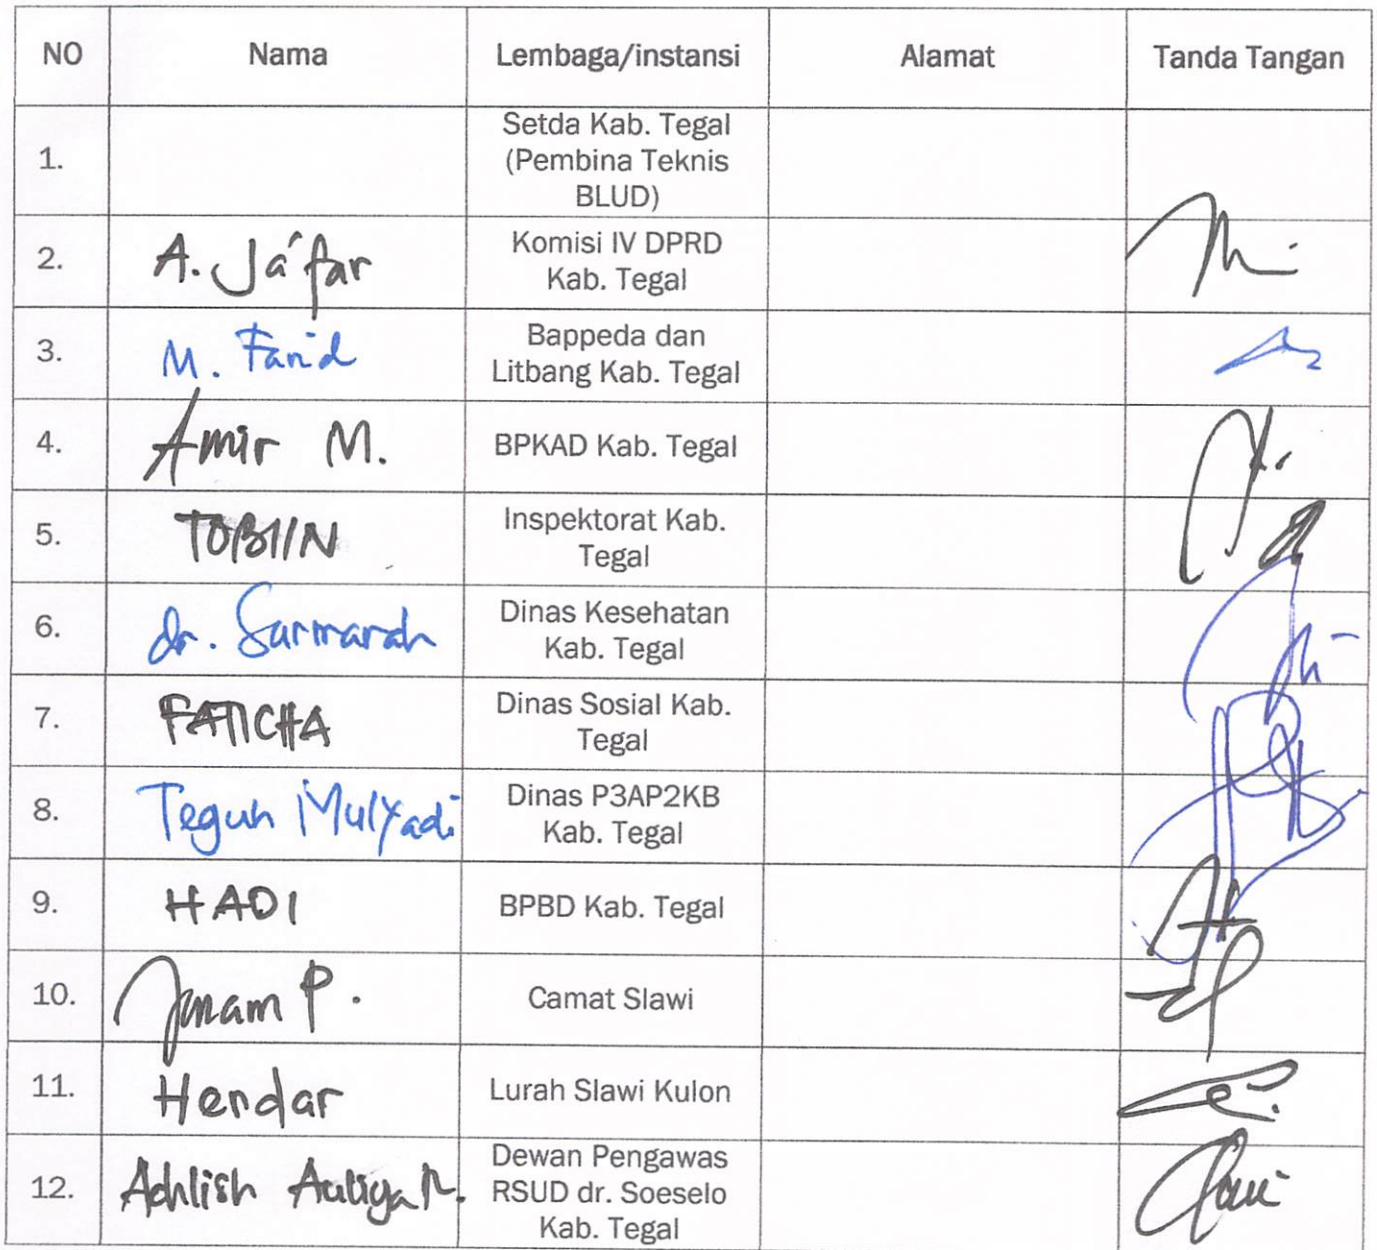 NO Nama Lembaga/instansi Alamat Tanda Tangan
1. Setda Kab. Tegal
(Pembina Teknis
BLUD)
2. A. Ja'far Komisi IV DPRD
Kab. Tegal
3. M. Farid Bappeda dan
Litbang Kab. Tegal
4. Amir M. BPKAD Kab. Tegal
5. TOBIIN Inspektorat Kab.
Tegal
6. dr. Sarmanah Dinas Kesehatan
Kab. Tegal
7. FATICHA Dinas Sosial Kab.
Tegal
8. Teguh Mulyadi Dinas P3AP2KB
Kab. Tegal
9. HADI BPBD Kab. Tegal
10. P. Camat Slawi
11. Hendar Lurah Slawi Kulon
12. Achlish Auliya Dewan Pengawas
RSUD dr. Soeselo
Kab. Tegal